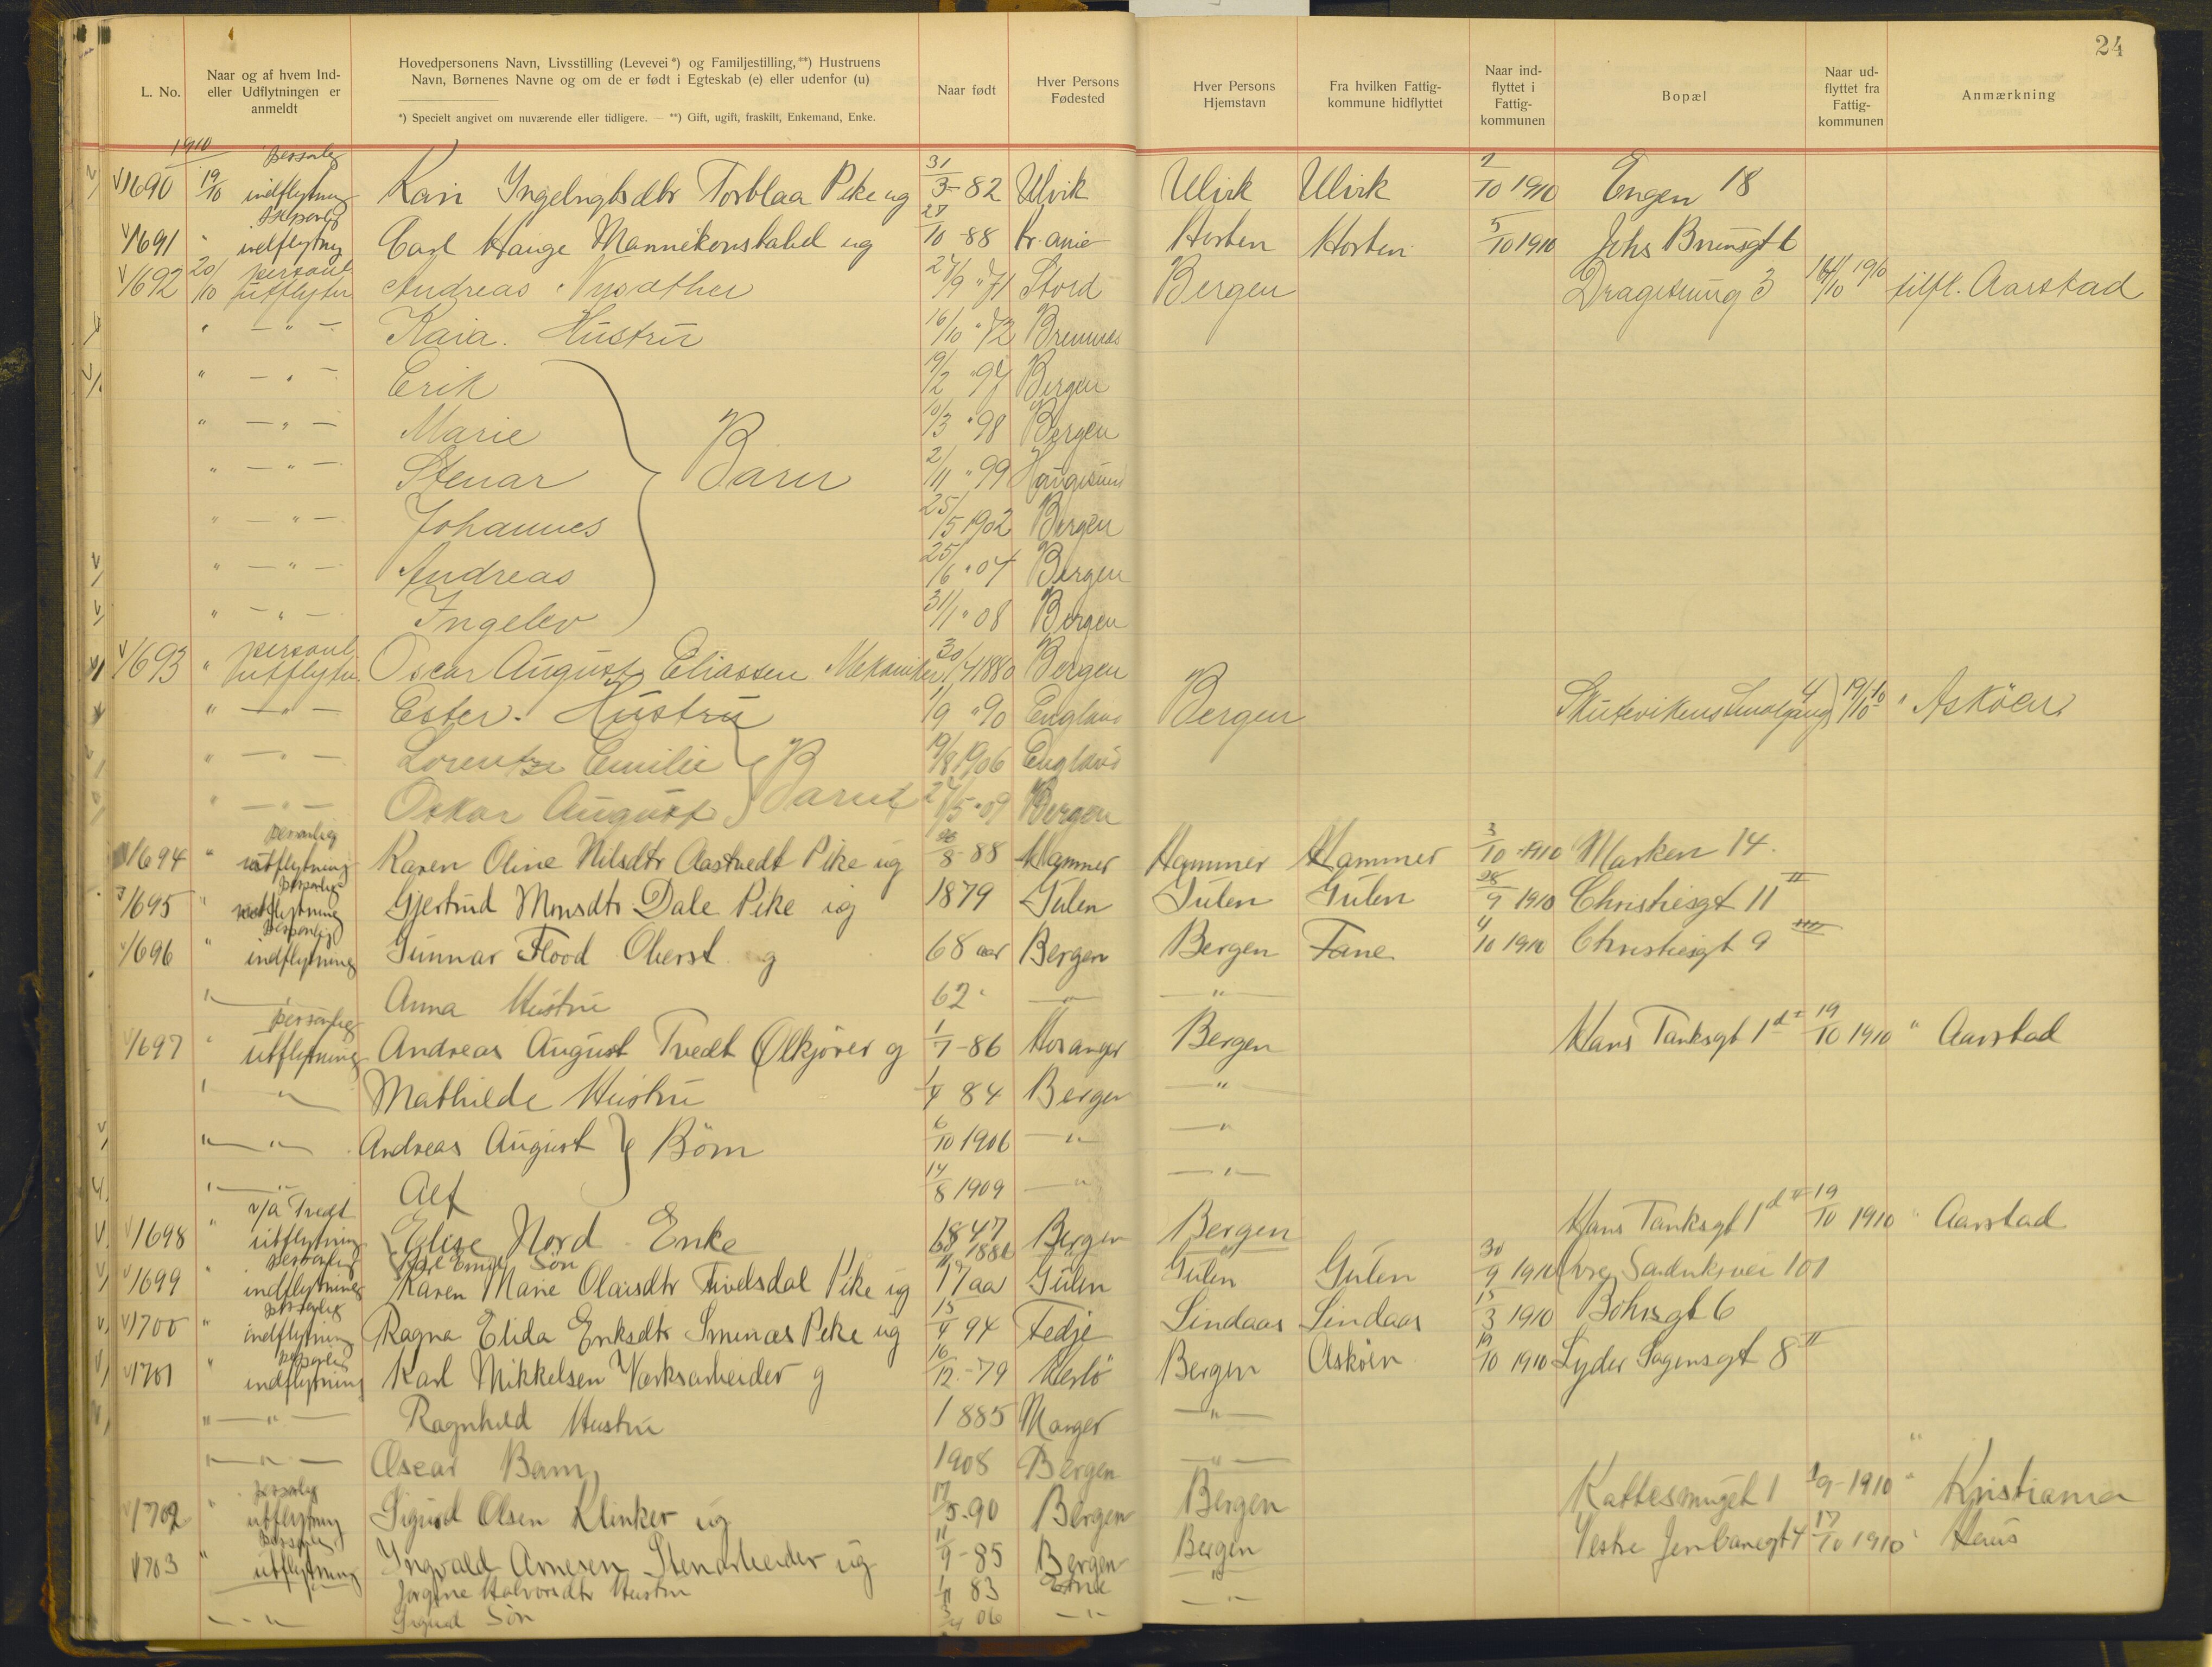 24
L. No. | Naar og af hvem Ind- eller Udflytningen er anmeldt | Hovedpersonens Navn, Livsstilling (Levevei *) og Familjestilling, **) Hustruens Navn, Børnenes Navne og om de er født i Egteskab (e) eller udenfor (u) | Naar født | Hver Persons Fødested | Hver Persons Hjemstavn | Fra hvilken Fattigkommune hidflyttet | Naar indflyttet i Fattigkommunen | Bopæl | Naar udflyttet fra Fattigkommunen | Anmærkning
*) Specielt angivet om nuværende eller tidligere. — **) Gift, ugift, fraskilt, Enkemand, Enke.
1910
1690 19/10 personlig indflytning Kari Torblaa Pike ug 31/3-82 Ulvik Ulvik Ulvik 10 1910 Engen 18
1691 " personlig indflytning Carl Hauge ug 27/10-88 Kr.ania Horten Horten 5/10 1910 Johs Brunsgt 6
1692 20/10 personl. utflytn. Andreas Nysæther 27/9 "71 Stord Bergen 3 1910 tilfl. Aarstad
" — " — Kaia. Hustru 16/10 "72 Bremnes
" — " — Erik 19/2 "97 Bergen
" — " — Marie 10/3 "98 Bergen
" — " — Stenar Barn 2/11 "99 Haugesund
" — " — Johannes 25/5 1902 Bergen
" — " — Andreas 25/6 "04 Bergen
" — " — Ingelev 31/1 "08 Bergen
1693 " personl. utflytn. Oscar August Eliassen Mekaniker 30/4 1880 Bergen
" — " — Ester. Hustru 1/9 "90 England Bergen Skutevikens Smalgang 4 19/10 10 " Asköen
" — " — Lorentze Emilie 19/8 1906 England
" — " — Oskar August Barn 27/5 "09 Bergen
1694 " personlig utflytning Karen Oline Nilsdtr Aastvedt Pike ug 8-88 Hammer Hammer Hammer 3/10 1910 Marken 14.
1695 " personlig indflytning Gjertrud Monsdtr Dale Pike ug 1879 Gulen Gulen Gulen 28/9 1910 Christiesgt 11 II
1696 " personlig indflytning Gunnar Flood Oberst g 68 aar Bergen Bergen Fane 4/10 1910 Christiesgt 9 III
" — " Anna Hustru 62 " — " — — " —
1697 " personlig utflytning Andreas August Tvedt Ølkjører g 1/7-86 Hosanger Bergen Hans Tanksgt 1 d 19/10 1910 " Aarstad
" — " Mathilde Hustru 1/4 84 Bergen — " —
" — " — Andreas August Börn 6/10 1906 — " — — " —
" — " — Alf 14/8 1909 — " — — " —
1698 " v/A Tvedt utflytning Elise Nord Enke 1847 Bergen Bergen Hans Tanksgt 1 d 19/10 1910 " Aarstad
Karl Emil Sön
1699 " personlig indflytning Karen Marie Olaisdtr Pike ug 17 aar Gulen Gulen Gulen 30/9 1910 Sandviksvei 101
1700 " personlig indflytning Ragna Elida Eriksdtr Pike ug 15/4 94 Fedje Lindaas Lindaas 15/3 1910 Böhrsgt 6
1701 " personlig indflytning Karl Mikkelsen Værksarbeider g 16/12-79 Herlö Bergen Asköen 19/10 1910 Lyder Sagensgt 8 II
" — " — Ragnhild Hustru 1885 Manger — " —
" — " — Oscar Barn 1908 Bergen — " —
1702 " personlig utflytning Sigurd Olsen Klinker ug 17/5-90 Bergen Bergen Kattesmuget 1 1/9-1910 " Kristiania
1703 " personlig utflytning Ingvald Arnesen Stenarbeider ug 11/9-85 Bergen Bergen Vestre Jernbanegt 4 17/10 1910 " Haus
Jørgine Halvorsdtr Hustru 83 Etne "
— " — Sigurd Sön 06 — " — — " —